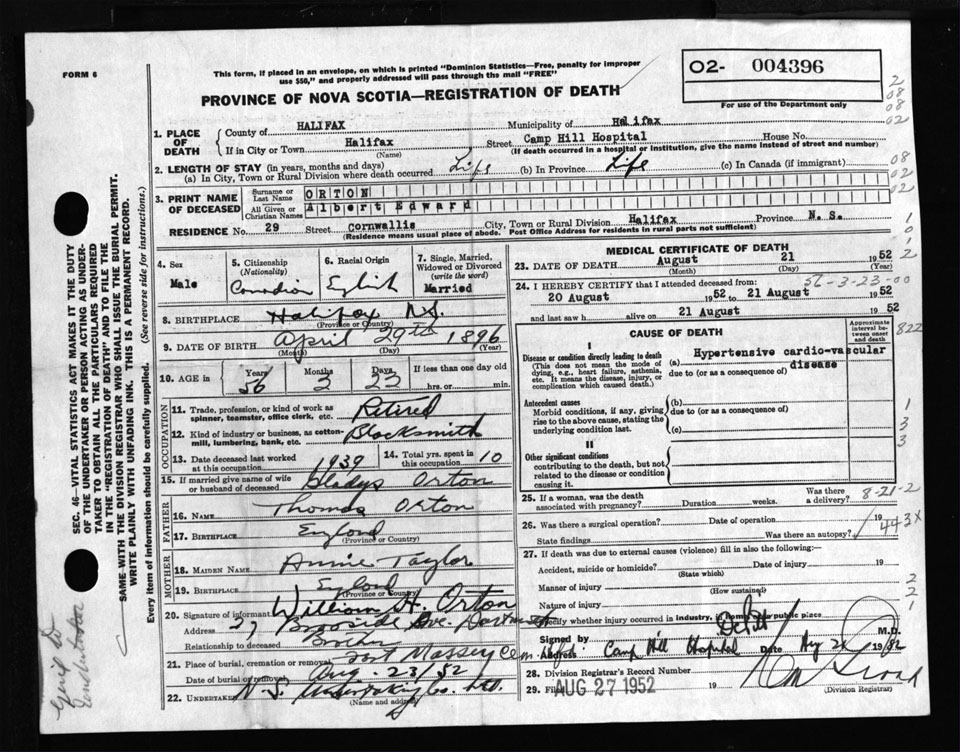 FORM 6
This form, if placed in an envelope, on which is printed "Dominion Statistics—Free, penalty for improper
use $50," and properly addressed will pass through the mail "FREE"
PROVINCE OF NOVA SCOTIA—REGISTRATION OF DEATH
O2- 004396
For use of the Department only
1. PLACE OF DEATH County of HALIFAX Municipality of Halifax
If in City or Town Halifax (Name) Street Camp Hill Hospital House No.
(If death occurred in a hospital or institution, give the name instead of street and number)
2. LENGTH OF STAY (in years, months and days)
(a) In City, Town or Rural Division where death occurred Life (b) In Province Life (c) In Canada (if immigrant)
3. PRINT NAME OF DECEASED Surname or Last Name ORTON
All Given or Christian Names Albert Edward
RESIDENCE No. 29 Street Cornwallis City, Town or Rural Division Halifax Province N. S.
(Residence means usual place of abode. Post Office Address for residents in rural parts not sufficient)
4. Sex Male
5. Citizenship (Nationality) Canadian
6. Racial Origin English
7. Single, Married, Widowed or Divorced (write the word) Married
8. BIRTHPLACE Halifax N.S. (Province or Country)
9. DATE OF BIRTH April 29th 1896
(Month) (Day) (Year)
10. AGE in Years 56 Months 3 Days 23 If less than one day old hrs. or min.
OCCUPATION
11. Trade, profession, or kind of work as spinner, teamster, office clerk, etc. Retired
12. Kind of industry or business, as cotton-mill, lumbering, bank, etc. Blacksmith
13. Date deceased last worked at this occupation 1939 14. Total yrs. spent in this occupation 10
15. If married give name of wife or husband of deceased Gladys Orton
FATHER
16. NAME Thomas Orton
17. BIRTHPLACE England (Province or Country)
MOTHER
18. MAIDEN NAME Annie Taylor
19. BIRTHPLACE England (Province or Country)
20. Signature of informant William H. Orton
Address Ave.
Relationship to deceased Brother
21. Place of burial, cremation or removal Fort Massey Cem
Date of burial or removal Aug 23/52
22. Undertaker N.S. Undertaking Co. Ltd.
(Name and address)
MEDICAL CERTIFICATE OF DEATH
23. DATE OF DEATH August 21 1952
(Month) (Day) (Year)
56-3-23-00
24. I HEREBY CERTIFY that I attended deceased from:
20 August 1952 to 21 August 1952
and last saw h alive on 21 August 1952
CAUSE OF DEATH
Approximate interval between onset and death
822
I
Disease or condition directly leading to death (This does not mean the mode of dying, e.g., heart failure, asthenia, etc. It means the disease, injury, or complication which caused death.)
(a) Hypertensive cardio-vascular disease
due to (or as a consequence of)
Antecedent causes
Morbid conditions, if any, giving rise to the above cause, stating the underlying condition last.
(b)
due to (or as a consequence of)
(c)
II
Other significant conditions
contributing to the death, but not related to the disease or condition causing it.
25. If a woman, was the death associated with pregnancy? Duration weeks. Was there a delivery?
8-21-2
26. Was there a surgical operation? Date of operation 19
State findings Was there an autopsy?
443X
27. If death was due to external causes (violence) fill in also the following:—
Accident, suicide or homicide? (State which) Date of injury 19
Manner of injury (How sustained)
Nature of injury
Specify whether injury occurred in industry, in home, or in public place
Signed by M.D.
Address Camp Hill Hospital Date Aug 21 1952
28. Division Registrar's Record Number
29. Filed AUG 27 1952 19
(Division Registrar)
SEC. 46—VITAL STATISTICS ACT MAKES IT THE DUTY
OF THE UNDERTAKER OR PERSON ACTING AS UNDER-
TAKER TO OBTAIN ALL THE PARTICULARS REQUIRED
IN THE "REGISTRATION OF DEATH" AND TO FILE THE
SAME WITH THE DIVISION REGISTRAR WHO SHALL ISSUE THE BURIAL PERMIT.
WRITE PLAINLY WITH UNFADING INK. THIS IS A PERMANENT RECORD.
Every item of information should be carefully supplied. (See reverse side for instructions.)